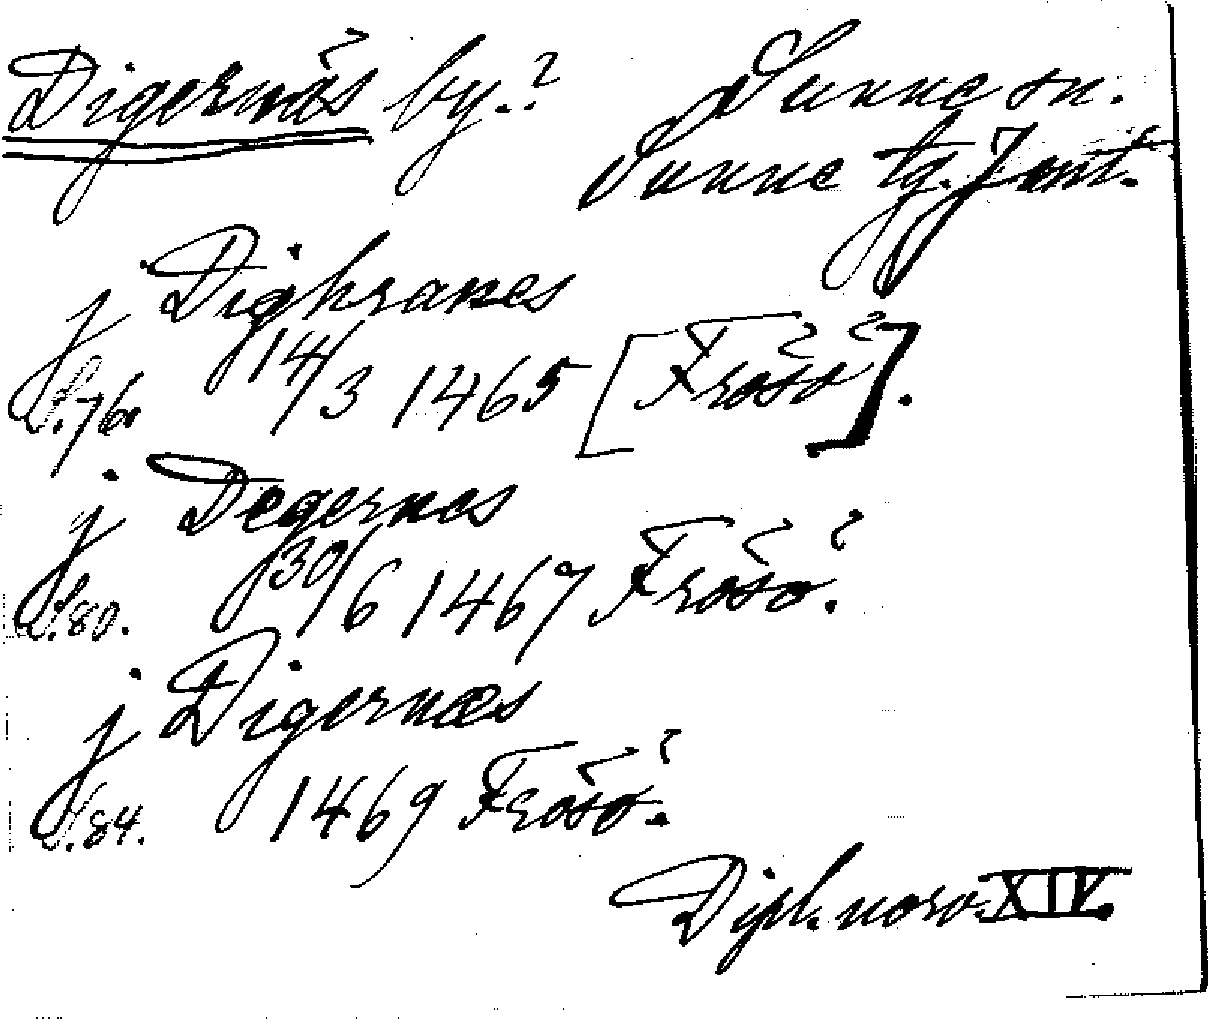 Digernäs by.? Sunne sn.
Sunne tg. Jämt.
j Dighranes
S.76. 14/3 1465 [Frösö].
j Degernes
S.80. 30/6 1467 Frösö.
j Digernæs
S.84. 1469 Frösö.
Dipl. norv. XIV.